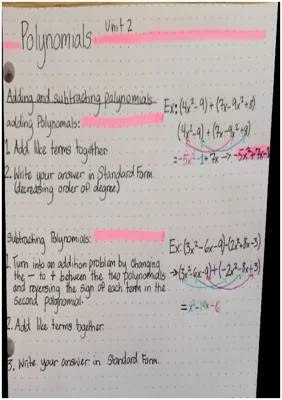 Polynomials Unit 2
Adding and subtracting polynomials
adding Polynomials:
1. Add like terms together
2. Write your answer in Standard Form
(decreasing order of degree)
Ex: (4x²-9) + (7x-9x²+8)
(4x²-9) + (7x-9x²+8)
=-5x²-1+7x → -5x²+7x-1
Subtracting Polynomials:
1. Turn into an addition problem by changing
the - to + between the two polynomials
and reversing the sign of each term in the
second polynomial.
2. Add like terms together
3. Write your answer in Standard Form.
Ex: (3x²-6x-9)-(2x²+8x-3)
→(3x²-6x-9)+(-2x²-8x+3)
= x²-14x-6